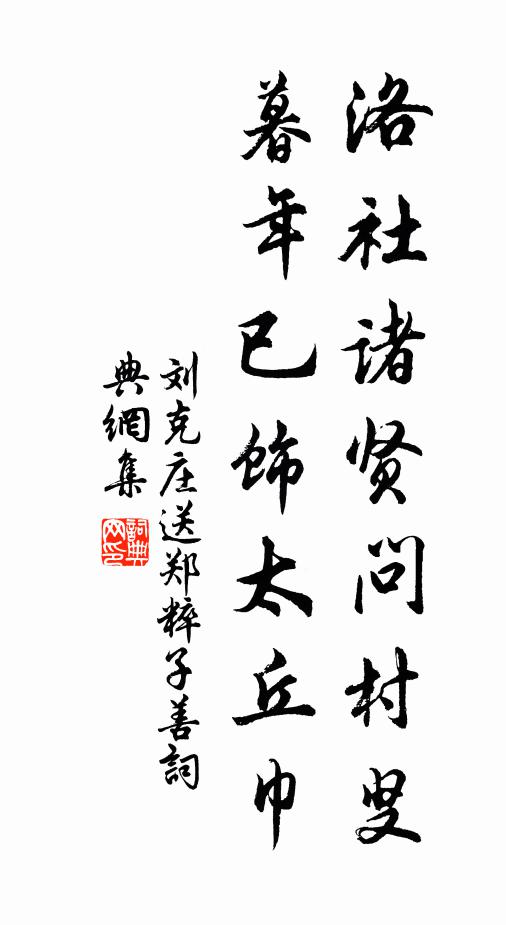 洛社诸贤问村叟
暮年已饰太丘巾
刘克庄送郑粹子善詞
典網集
詞典网印